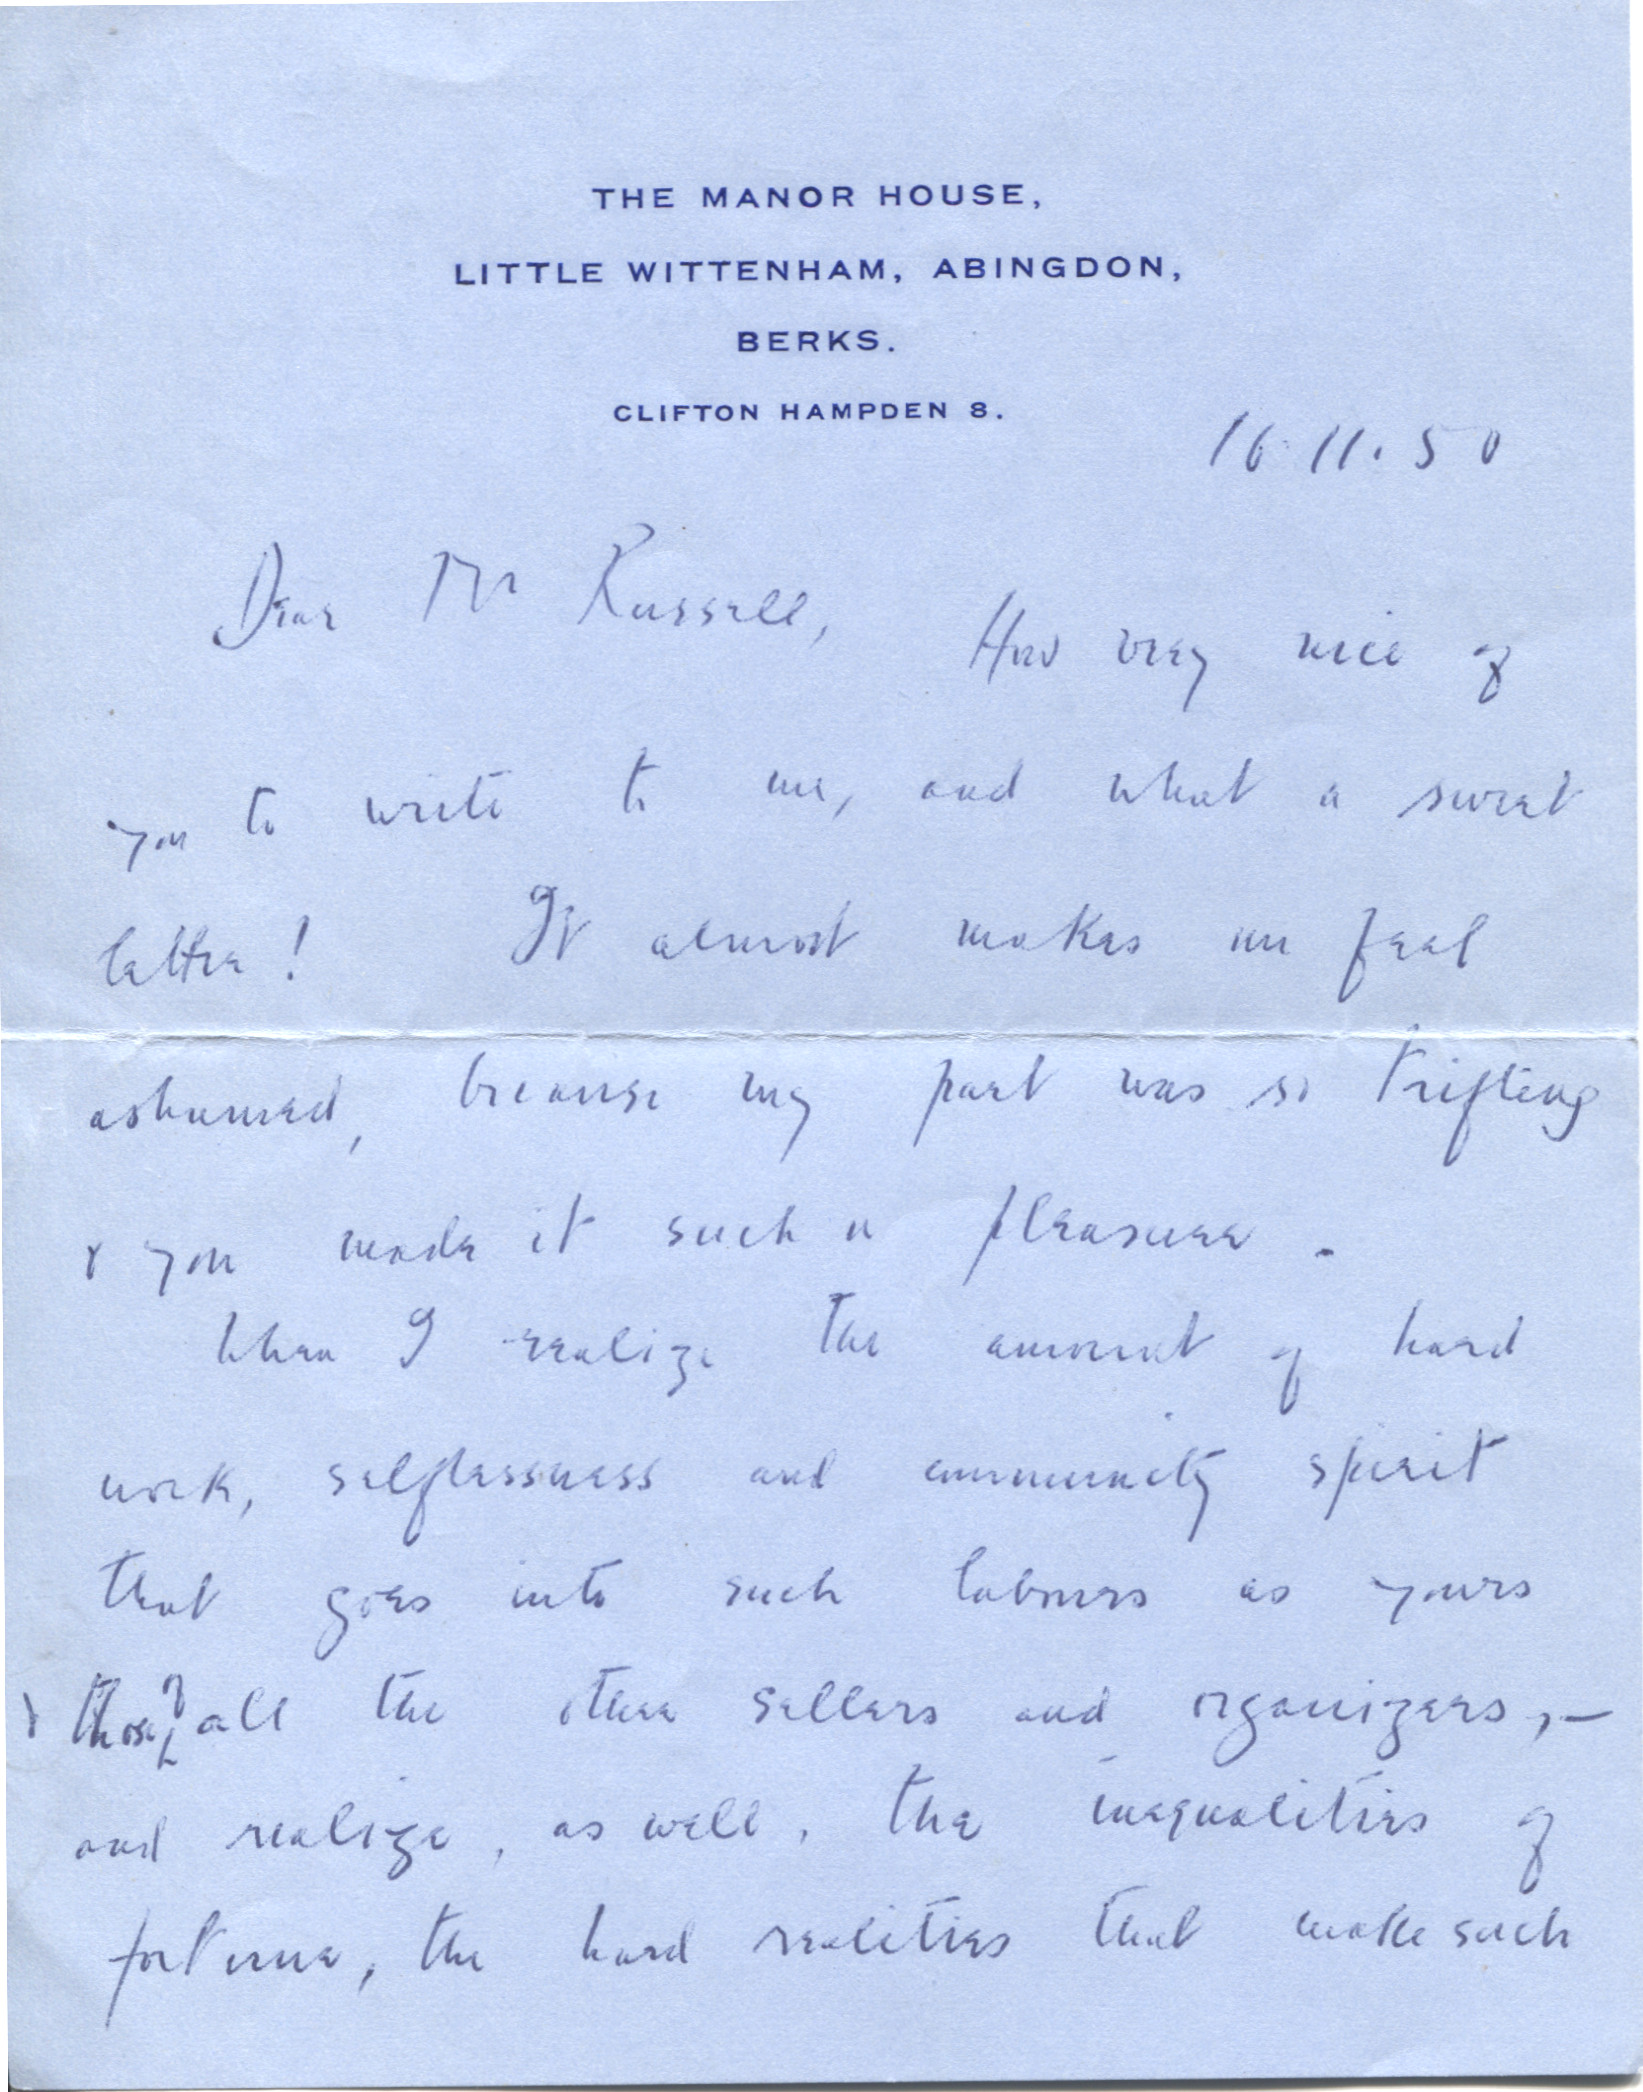 THE MANOR HOUSE,
LITTLE WITTENHAM, ABINGDON,
BERKS.
CLIFTON HAMPDEN 8.
16.11.50
Dear Mr Russell,
How very nice of
you to write to me, and what a sweet
letter! It almost makes me feel
ashamed, because my part was so trifling
& you made it such a pleasure.
When I realize the amount of hard
work, selflessness and community spirit
that goes into such labours as yours
& those of all the other sellers and organizers, —
and realize, as well, the inequalities of
fortune, the hard realities that make such